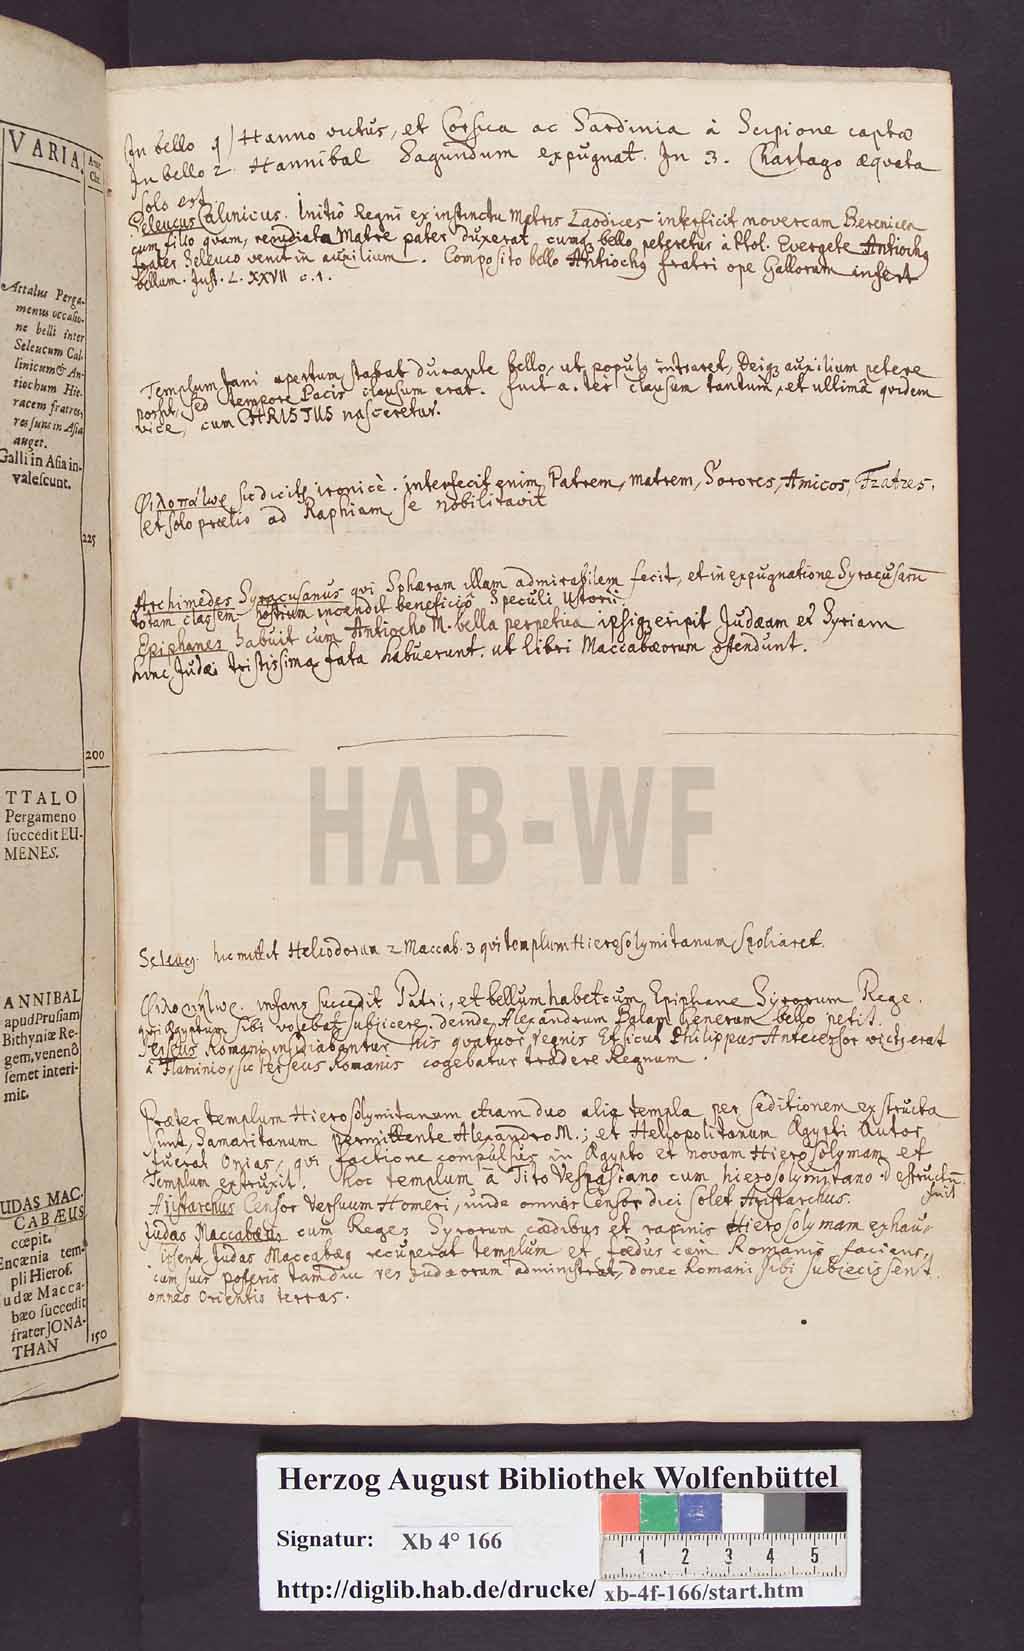 VARIA.
Ante
Chr.
Attalus Perga-
menus occasio-
ne belli inter
Seleucum Cal-
linicum & An-
tiochum Hie-
racem fratres,
res suas in Asia
auget.
Galli in Asia in-
valescunt.
225
200
TTALO
Pergameno
succedit EU-
MENES.
ANNIBAL
apud Prusiam
Bithyniæ Re-
gem, venenô
semet interi-
mit.
UDAS MAC-
CABÆUS
cœpit.
Encænia tem-
pli Hierof.
udæ Macca-
bæo succedit
frater JONA-
THAN
150
In bello 1) Hanno victus, et Corsica ac Sardinia à Scipione captæ
In bello 2. Hannibal Sagundum expugnat. In 3. Chartago æquata
solo est
Seleucus Calinicus. Initiô Regni ex instinctu Matris Laodices interficit novercam Berenicen
cum filio quam, repudiata Matre pater duxerat cumq bello peteretur à Ptol. Evergete Antiochq
frater Seleuco venit in auxilium. Composito bello Antiochq fratri ope Gallorum infert
bellum. Just. L. XXVII c. 1.
Templum Jani apertum stabat durante bello, ut populq intraret, Deiq auxilium petere
posset, sed tempore Pacis clausum erat. Fuit a. ter clausum tantum, et ultimâ quidem
vice, cum CHRISTUS nasceretur.
Φιλοπάτωρ sic dicitq ironicè. interfecit enim Patrem, matrem, Sorores, Amicos, Fratres,
et solo prælio ad Raphiam se nobilitavit
Archimedes Syracusanus qui Sphæram illam admirabilem fecit, et in expugnatione Syracusarū
totam classem hostium incendit beneficiô Speculi Ustorii
Epiphanes habuit cum Antiocho M. bella perpetua ipsiq eripit Judæam et Syriam
hinc Judæi tristissima fata habuerunt. ut libri Maccabæorum ostendunt.
HAB-WF
Seleucq. hic mittit Heliodorum 2 Maccab. 3 qui templum Hierosolymitanum spoliaret.
Φιλομήτωρ. infans succedit Patri, et bellum habet cum Epiphane Syrorum Rege.
qui Ægyptum sibi volebat subjicere. deinde Alexandrum Balam generum bello petit.
Perseus Romani insidiabantur his quatuor regnis Et sicut Philippus Antecessor victq erat
à Flaminio, sic Perseus Romanis cogebatur tradere Regnum.
Præter templum Hierosolymitanum etiam duo alia templa per seditionem exstructa
sunt, Samaritanum permittente Alexandro M.; et Heliopolitanum Ægypti Autor
fuerat Onias, qui factione compulsus in Ægypto et novam Hierosolymam et
Templum extruxit. hoc templum à Tito Vespasiano cum hierosolymitano destructū
fuit
Aristarchus Censor Versuum Homeri, unde omnis Censor dici solet Aristarchus.
Judas Maccabæus cum Reges Syrorum cædibus et rapinis Hierosolymam exhau-
sissent Judas Maccabæq recuperat templum et fœdus cum Romanis faciens,
cum suis posteris tamdiu res Judæorum administrat, donec Romani sibi subjecissent
omnes Orientis terras.
Herzog August Bibliothek Wolfenbüttel
Signatur: Xb 4° 166
1 2 3 4 5
http://diglib.hab.de/drucke/ xb-4f-166/start.htm